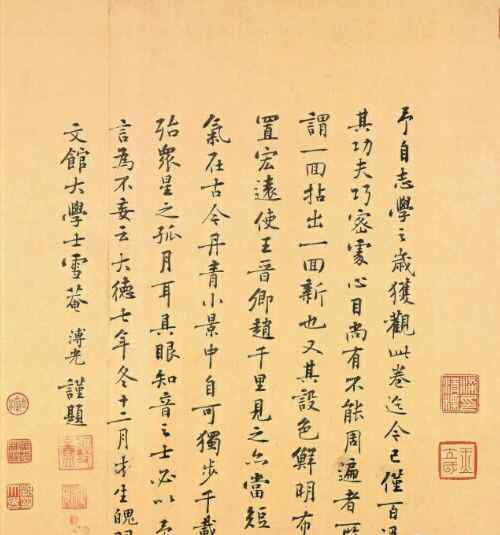 予自志學之歲獲觀此卷迄今已僅百
其功夫巧密處心目尚有不能周遍者所
謂一囬拈出一囬新也又其設色鮮明布
置宏遠使王晉卿趙千里見之亦當短
氣在古今丹青小景中自可獨步千載
殆眾星之孤月耳具眼知音之士必以
言為不妄云大德七年冬十二月才生魄
文館大學士雪菴溥光謹題